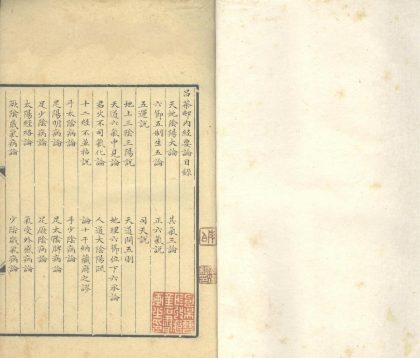 呂菊邨內經要論目錄
天地陰陽大論
其氣三論
六節五制生五論
正六氣說
五運說
司天說
地土三陰三陽說
天道間五制
天道六氣中見論
地理六節位下六承論
君火不司氣化論
人道大陰陽說
十二經不並枯說
論十干納藏府之謬
手太陰病論
手少陰病論
足陽明病論
足太陰脾病論
足少陰病論
足厥陰病論
太陽經絡論
氣受外感病論
厥陰感氣病論
少陰感氣病論